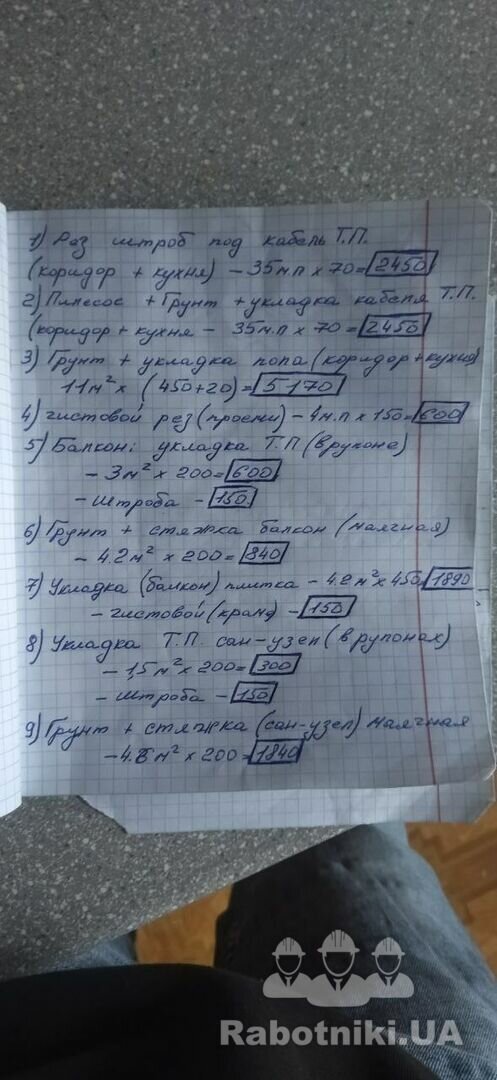 1) Рез штроб под кабель Т.П.
(коридор + кухня) - 35м.п х 70= 2450
2) Пылесос + Грунт + укладка кабеля Т.П.
(коридор + кухня - 35м.п х 70 = 2450
3) Грунт + укладка пола (коридор+кухня)
11м² х (450+20)= 5170
4) чистовой рез (проемы) - 4м.п х 150= 600
5) Балкон: укладка Т.П (в рулоне)
- 3м² х 200= 600
- штроба - 150
6) Грунт + стяжка балкон (маячная)
- 4.2м² х 200= 840
7) Укладка (балкон) плитка - 4.2м² х 450= 1890
- чистовой (кран) - 150
8) Укладка Т.П. сан-узел (в рулонах)
- 1,5м² х 200= 300
- штроба - 150
9) Грунт + стяжка (сан-узел) маячная
- 4.6м² х 200= 1840
Rabotniki.UA